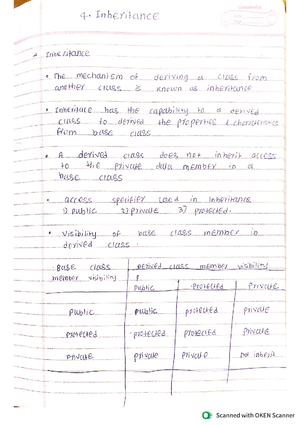 4. Inheritance
Inheritance
• The mechanism of deriving a class from
another class is known as inheritance
• Inheritance has the capability to a derived
class to derived the properties & characteristics
from base class
• A derived class does not inherit access
to the private data member in a
base class
• access specifier used in Inheritance
1) public 2) private 3) protected.
• Visibility of base class member in
derived class.
Base class Derived class member visibility
member visibility
Public Protected Private
Public Public protected private
protected protected protected private
private private private not inherit
Scanned with OKEN Scanner